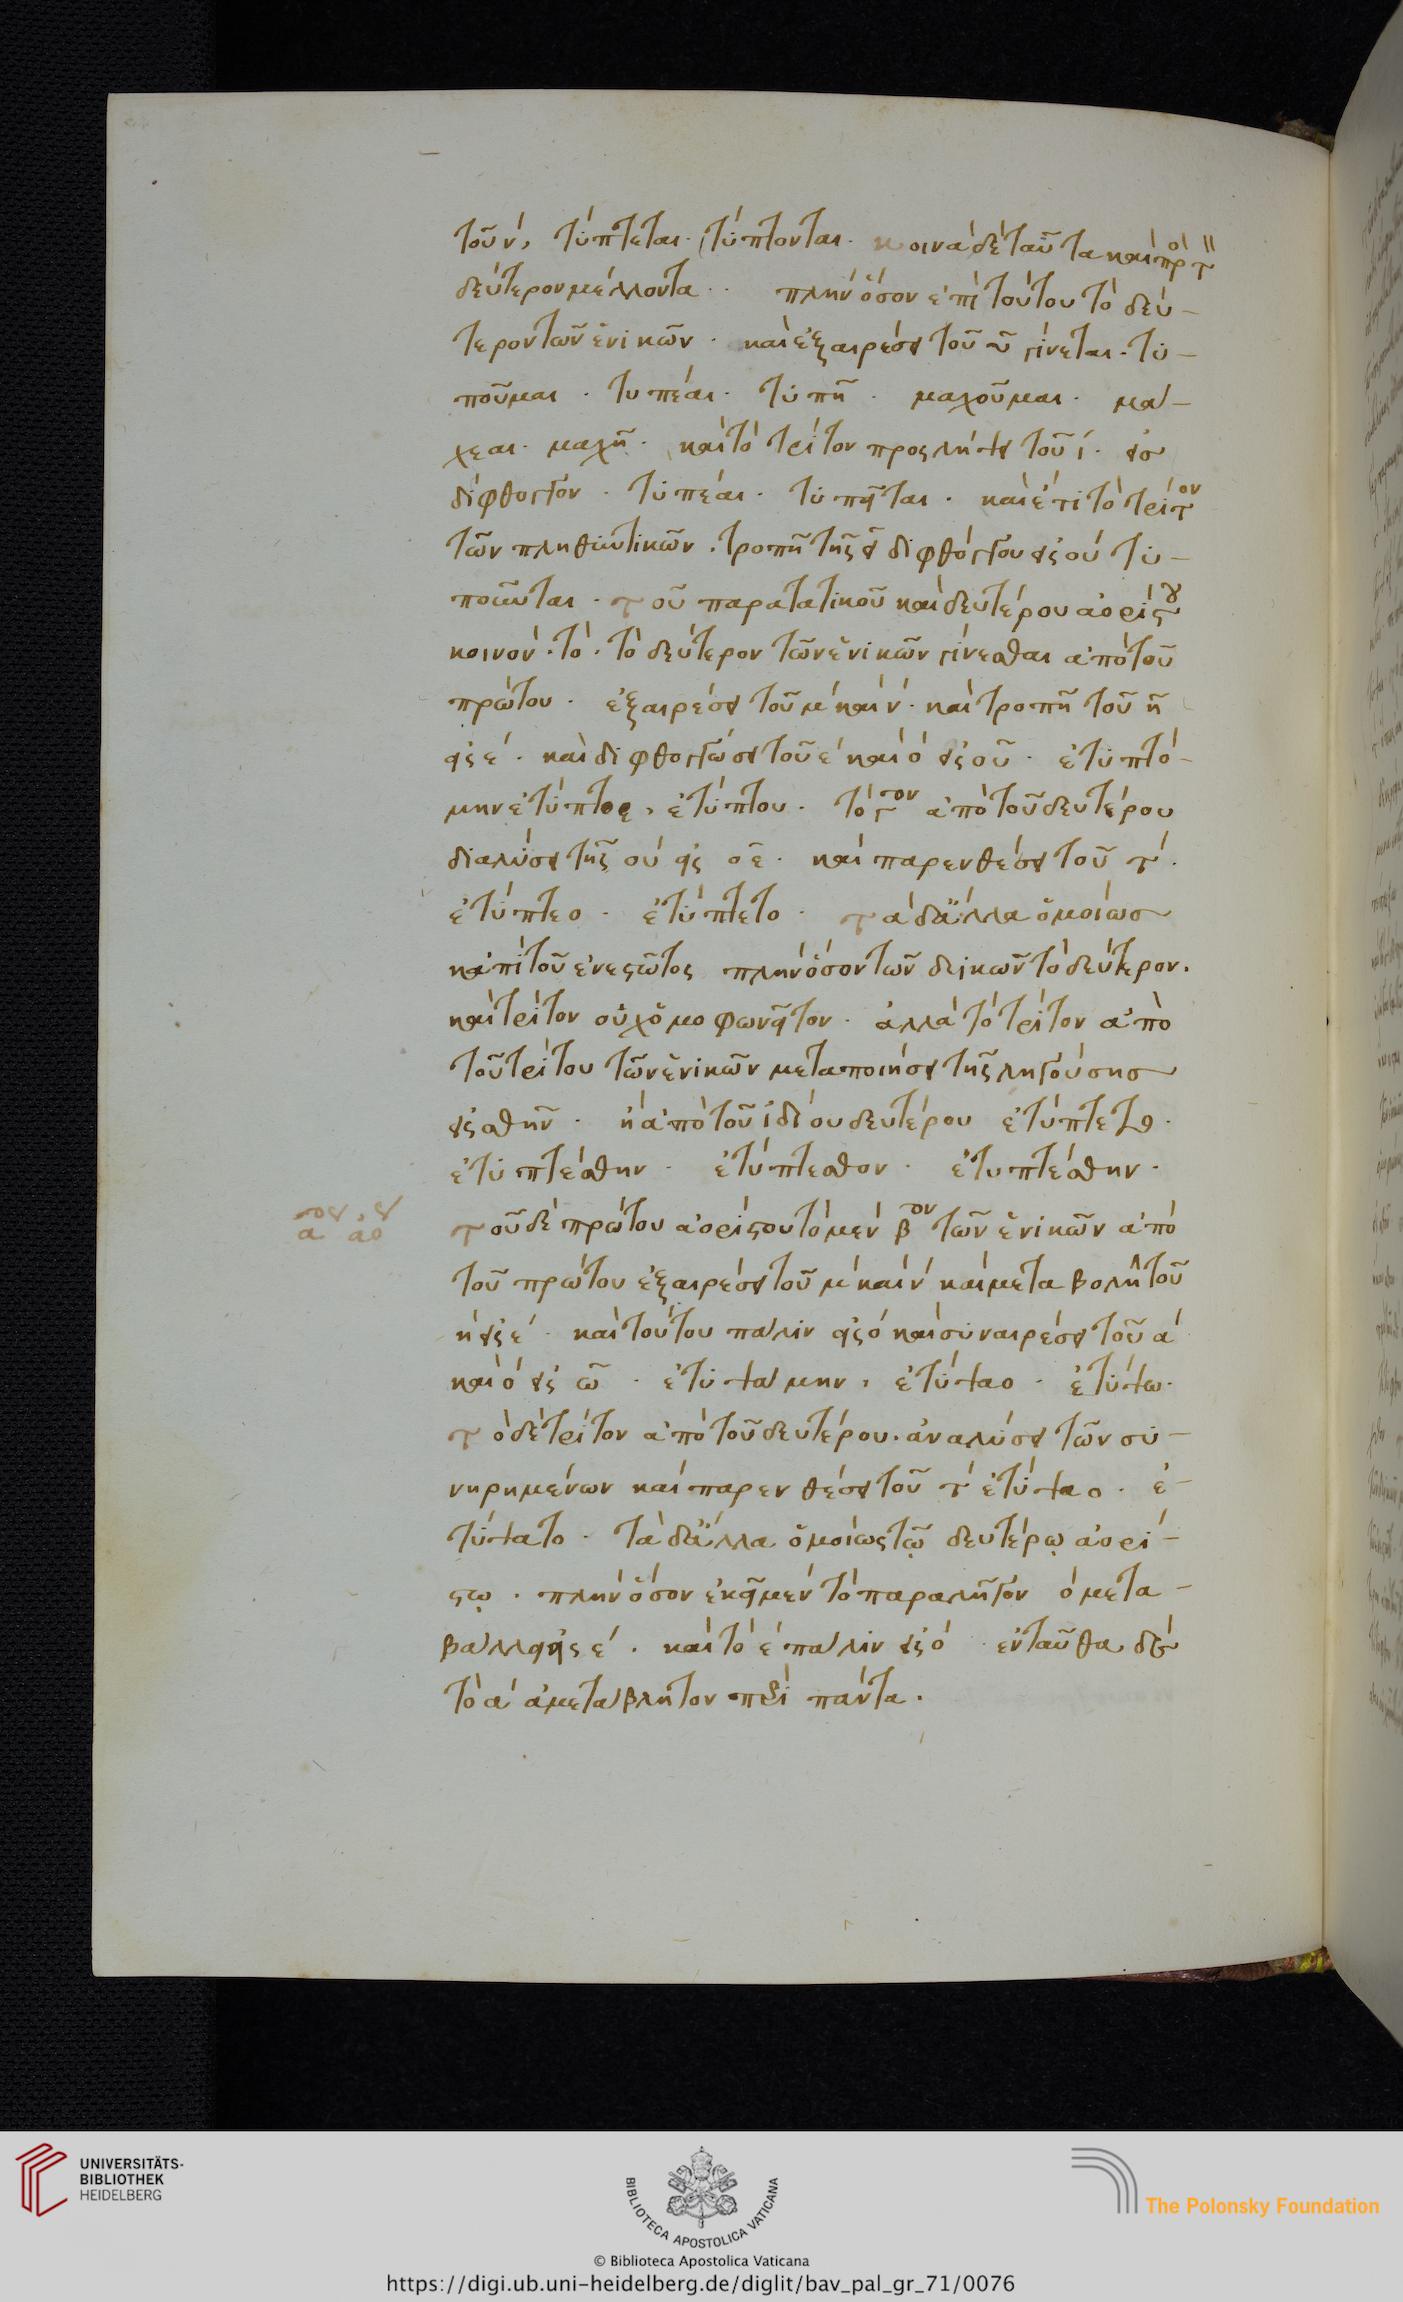 τοῦ ν, τύπτεται· τύπτονται· κοινὰ δὲ ταῦτα καὶ πρὸ τ
δεύτερον μέλλοντα· πλὴν ὅσον ἐπὶ τούτου τὸ δεύ-
τερον τῶν ἑνικῶν· καὶ ἐξαιρέσει τοῦ υ γίνεται· τυ-
ποῦμαι· τυπέαι· τυπῆ· μαχοῦμαι· μα-
χεαι· μαχῆ· καὶ τὸ τρίτον προσλήψει τοῦ ι·
δίφθογγον· τυπέαι· τυπῆται· καὶ ἔτι τὸ τρίτον
τῶν πληθυντικῶν· τροπῆ τῆς ει διφθόγγου εἰς ου τυ-
ποῦνται· τοῦ παρατατικοῦ καὶ δευτέρου ἀορίστου
κοινόν· τὸ· τὸ δεύτερον τῶν ἑνικῶν γίνεσθαι ἀπὸ τοῦ
πρώτου· ἐξαιρέσει τοῦ μ καὶ ν· καὶ τροπῆ τοῦ η
εἰς ε· καὶ διφθογγώσει τοῦ ε καὶ ο εἰς ου· ἐτυπτό-
μην ἐτύπτοε, ἐτύπτου· τὸ γον ἀπὸ τοῦ δευτέρου
διαλύσει τῆς ου εἰς οε· καὶ παρενθέσει τοῦ τ·
ἐτύπτεο· ἐτύπτετο· τὰ δ' ἄλλα ὁμοίως
κἀπὶ τοῦ ἐνεστῶτος πλὴν ὅσον τῶν δυϊκῶν τὸ δεύτερον.
καὶ τρίτον οὐχ ὁμοφωνεῖτον· ἀλλὰ τὸ τρίτον ἀπὸ
τοῦ τρίτου τῶν ἑνικῶν μεταποιήσει τῆς ληγούσης
εἰς σθην· ἢ ἀπὸ τοῦ ἰδίου δευτέρου ἐτύπτετο·
ἐτυπτέσθην· ἐτύπτεσθον· ἐτυπτέσθην·
τοῦ δὲ πρώτου ἀορίστου τὸ μὲν βον τῶν ἑνικῶν ἀπὸ
τοῦ πρώτου ἐξαιρέσει τοῦ μ καὶ ν καὶ μεταβολῆ τοῦ
η εἰς ε· καὶ τούτου πάλιν εἰς ο καὶ συναιρέσει τοῦ α
καὶ ο εἰς ω· ἐτυψάμην, ἐτύψαο· ἐτύψω·
τὸ δὲ τρίτον ἀπὸ τοῦ δευτέρου· ἀναλύσει τῶν συ-
νηρημένων καὶ παρενθέσει τοῦ τ ἐτύψαο· ἐ-
τύψατο· τὰ δ' ἄλλα ὁμοίως τῷ δευτέρῳ ἀορί-
στῳ· πλὴν ὅσον ἐκεῖ μὲν τὸ παραλῆγον ο μετα-
βάλλει εἰς ε· καὶ τὸ ε πάλιν εἰς ο ἐνταῦθα δὲ
τὸ α ἀμετάβλητον περὶ πάντα.
UNIVERSITÄTS-
BIBLIOTHEK
HEIDELBERG
BIBLIOTECA APOSTOLICA VATICANA
© Biblioteca Apostolica Vaticana
The Polonsky Foundation
https://digi.ub.uni-heidelberg.de/diglit/bav_pal_gr_71/0076